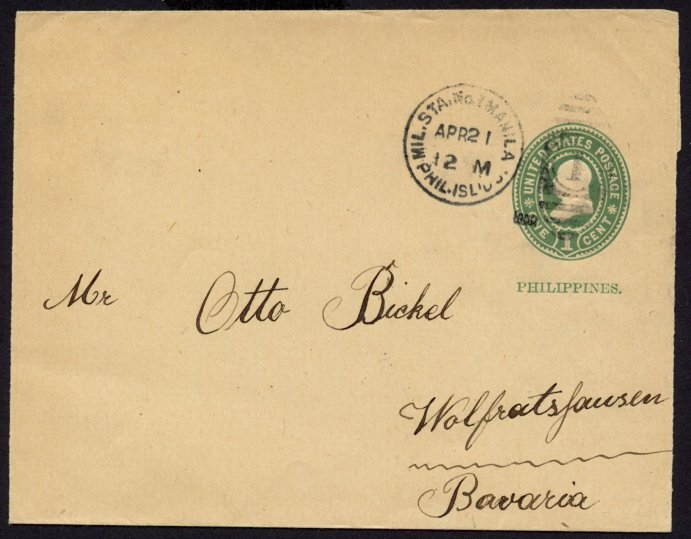 MIL. STA. No. 1 MANILA
APR 21
12 M
PHIL. ISL'DS
UNITED STATES POSTAGE
ONE 1 CENT
PHILIPPINES.
Mr Otto Bickel
Wolfratshausen
Bavaria